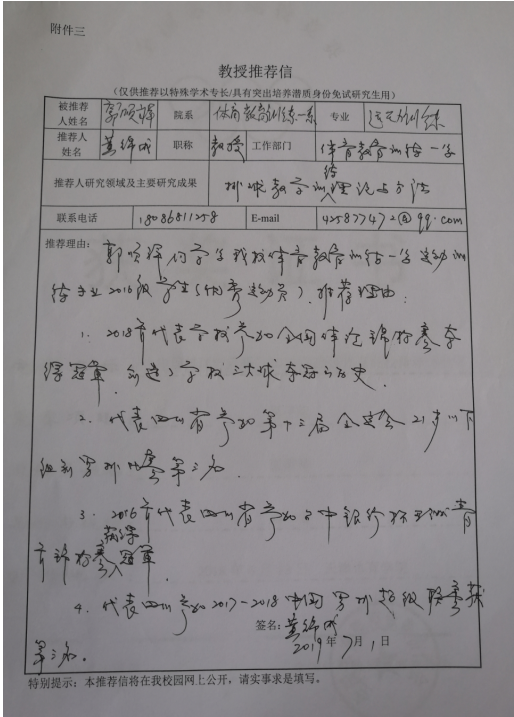 附件三
教授推荐信
（仅供推荐以特殊学术专长/具有突出培养潜质身份免试研究生用）
被推荐人姓名 郭硕 院系 体育教育训练一系 专业 运动训练
推荐人姓名 黄锦成 职称 教授 工作部门 体育教育训练一学
推荐人研究领域及主要研究成果 排球教学训练理论与方法
联系电话 18086811258 E-mail 425877472@qq.com
推荐理由：郭 同学系我校体育教育训练一学运动训
练专业2016级学生（优秀运动员）．推荐理由：
1．2018年代表学校参加全国体 锦标赛夺
得冠军，创造了学校三大球夺冠的历史．
2．代表四川省参加第十三届全运会21岁以下
组别男排比赛第三名．
3．2016年代表四川省参加 中银行杯 青
年锦标赛获得冠军．
4．代表四川参加2017-2018中国男排超级联赛获
签名：黄锦成
2019年7月1日
第三名．
特别提示：本推荐信将在我校园网上公开，请实事求是填写。